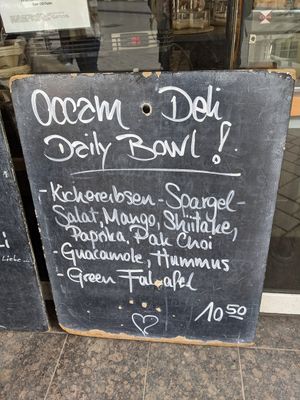 Occam Deli
Daily Bowl!
- Kichererbsen-Spargel-
Salat, Mango, Shiitake,
Paprika, Pak Choi
- Guacamole, Hummus
- Green Falafel
10.50